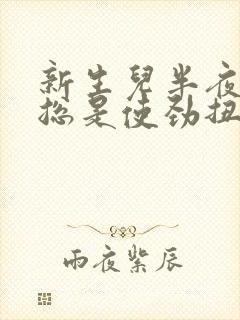 新生儿半夜
总是使劲扭
雨夜紫辰